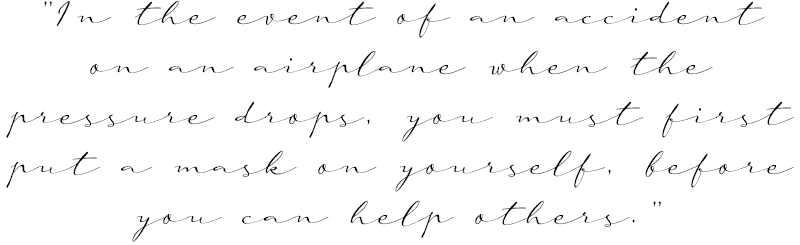 "In the event of an accident
on an airplane when the
pressure drops, you must first
put a mask on yourself, before
you can help others."